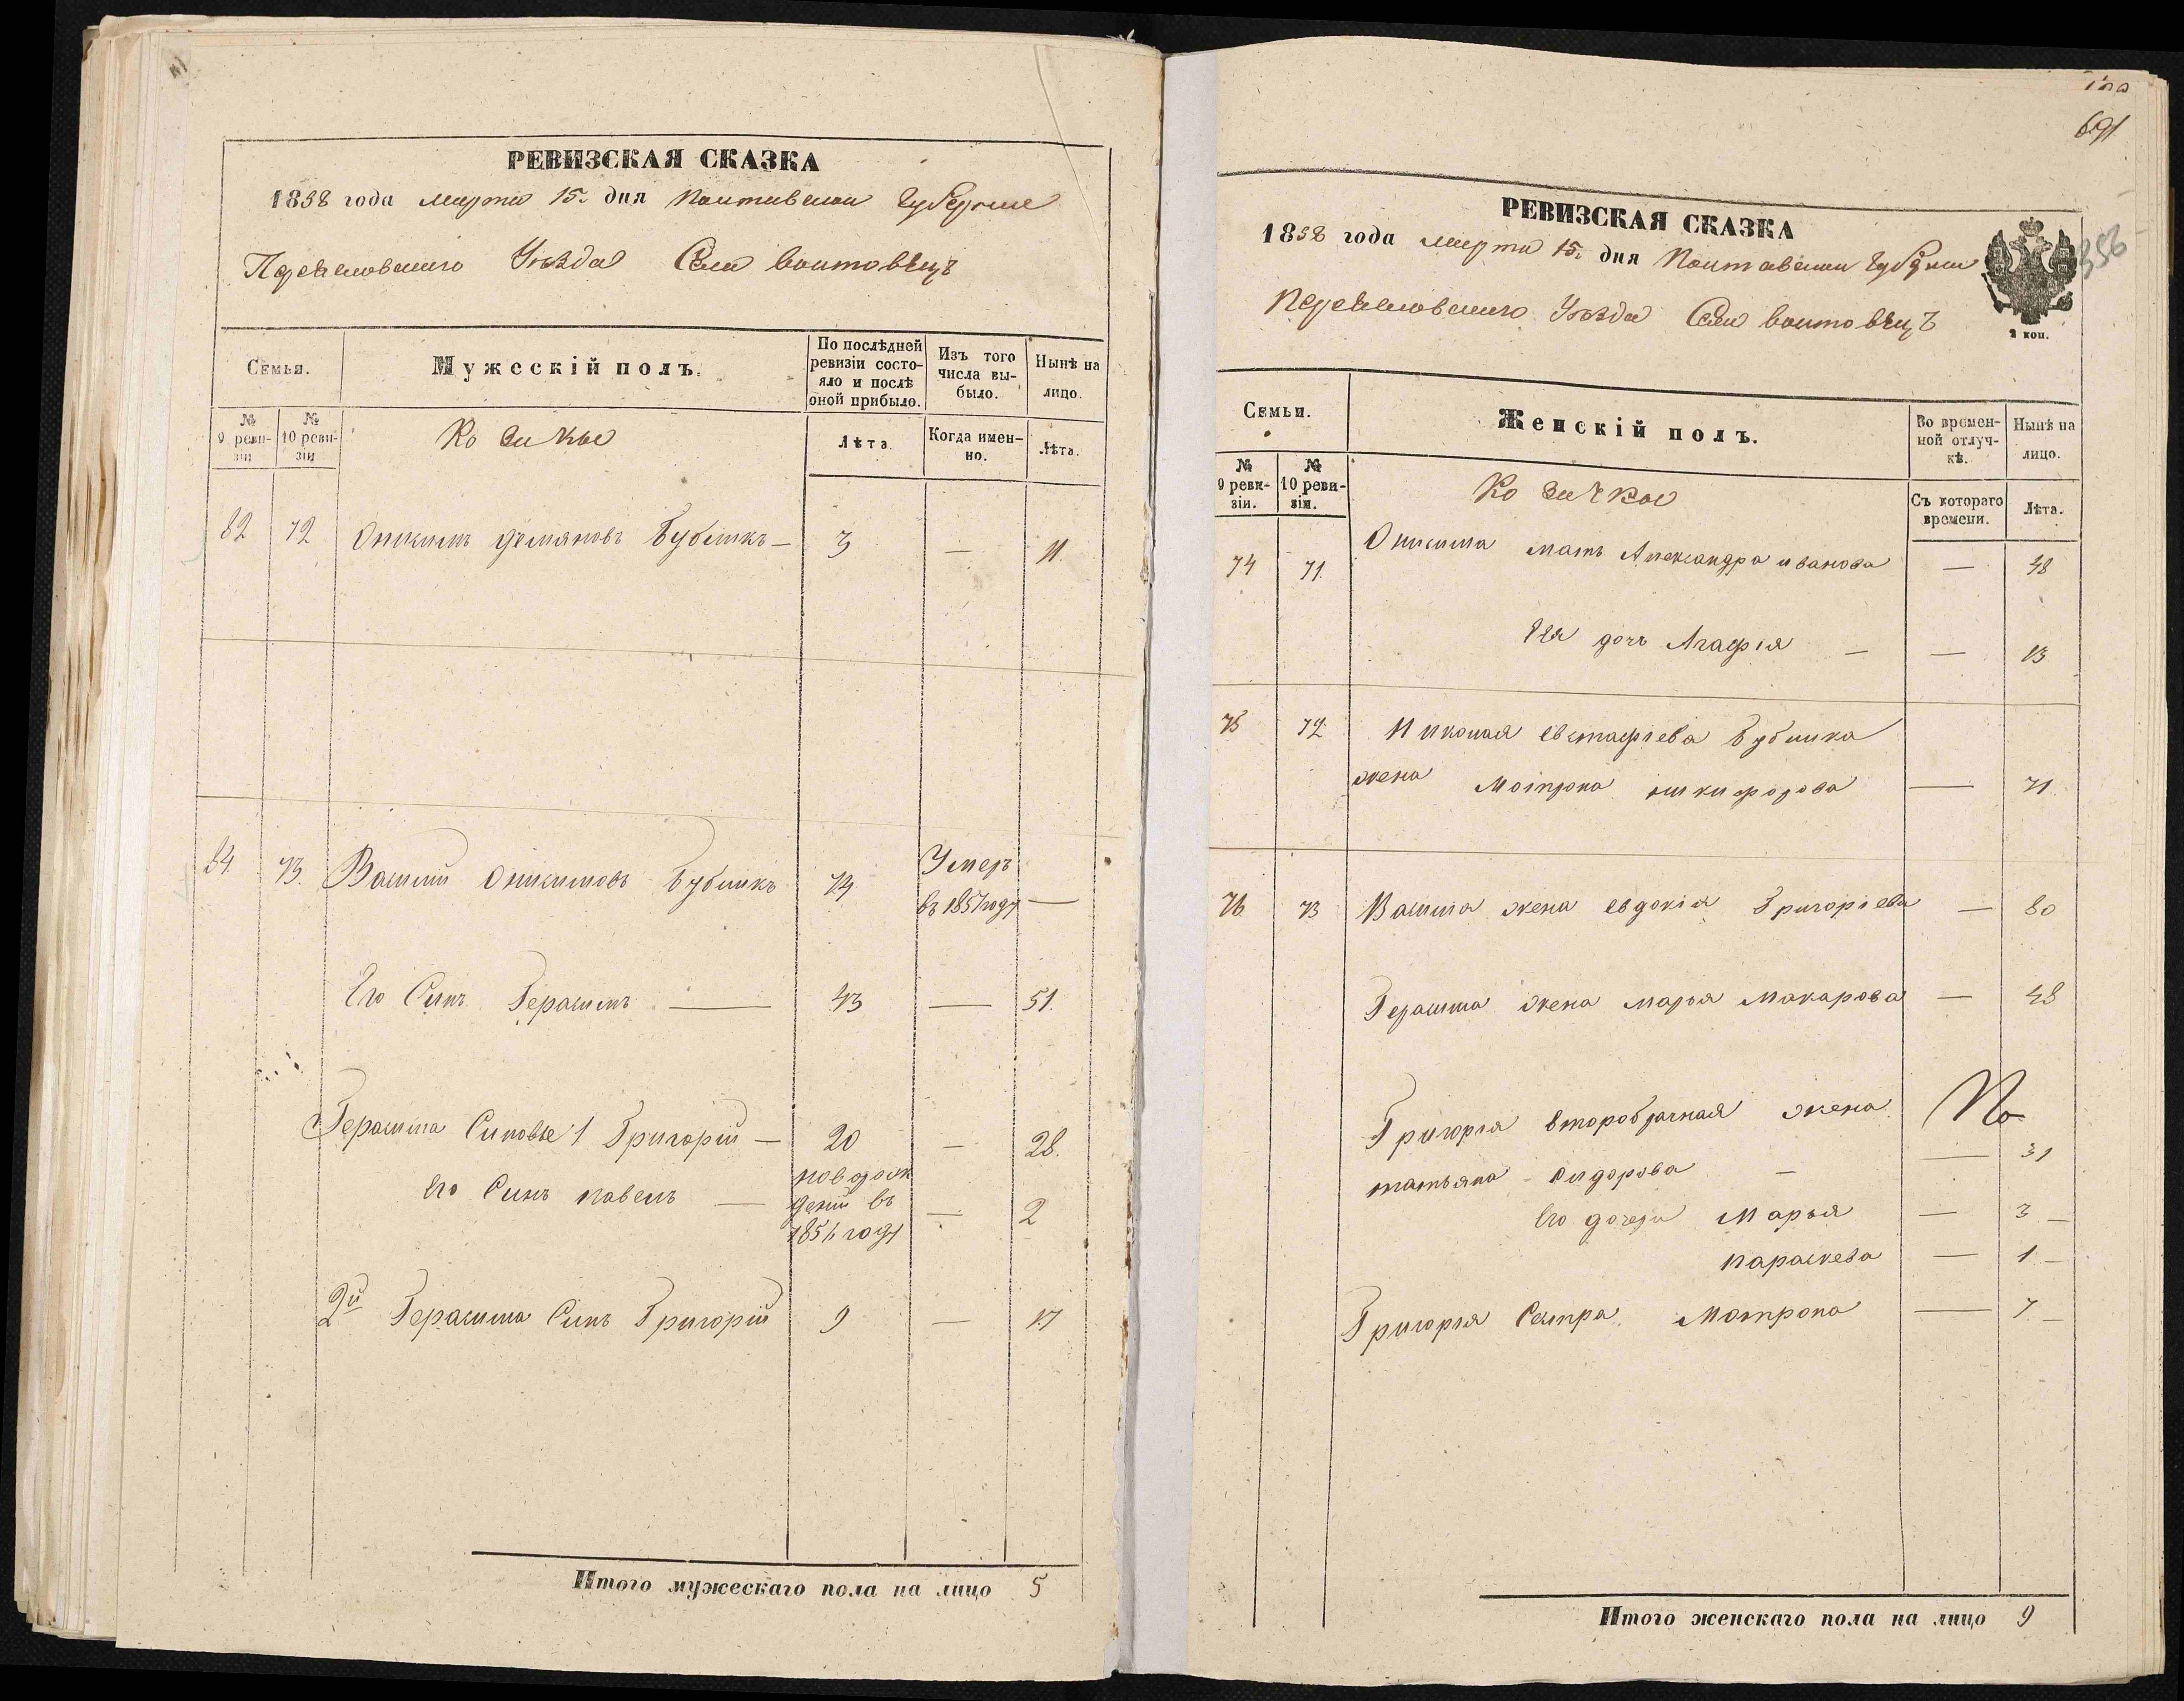 РЕВИЗСКАЯ СКАЗКА
1858 года марта 15. дня Полтавской Губернии
Переяславского Уезда Села Воитовецъ
Семьи.
Мужескій полъ.
По послѣдней ревизіи состояло и послѣ оной прибыло.
Изъ того числа выбыло.
Нынѣ на лицо.
№ 9 ревизіи
№ 10 ревизіи
Козаки
Лѣта.
Когда именно.
Лѣта.
82 72 Онисимъ Демяновъ Бубликъ — 3 — 11.
84. 73. Василий Онисимовъ Бубликъ 74 Умеръ
въ 1857 году —
Его Синъ Герасимъ — 43 — 51.
Герасима Синовье 1 Григорій — 20 — 28.
Его Синъ павелъ — новорож
деній въ — 2
1856 году
2й Герасима Синъ Григорій 9 — 17
Итого мужескаго пола на лицо 5
691
356
РЕВИЗСКАЯ СКАЗКА
1858 года марта 15. дня Полтавской Губернии
Переяславского Уезда Села Воитовецъ
2 коп.
Семьи.
Женскій полъ.
Во временной отлучкѣ.
Нынѣ на лицо.
№ 9 ревизіи.
№ 10 ревизіи.
Козачки
Съ котораго времени.
Лѣта.
74 71. Онисима мать Александра иванова — 48
Ея дочъ Агафія — — 13
75 72. Николая Евстафіева Бублика
жена Мотрона никифорова — 71.
76. 73 Василия жена евдокія Григоріева — 80
Герасима жена марья Макарова — 48
Григорія второбрачная жена
татьяна Сидорова — — 31
Его дочери Марья — 3 —
параскева — 1. —
Григорія Сестра Мотрона — 7. —
Итого женскаго пола на лицо 9